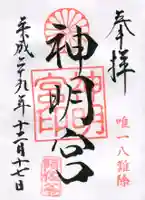 奉拝
唯一八難除
神明宮
平成二十九年十二月十七日